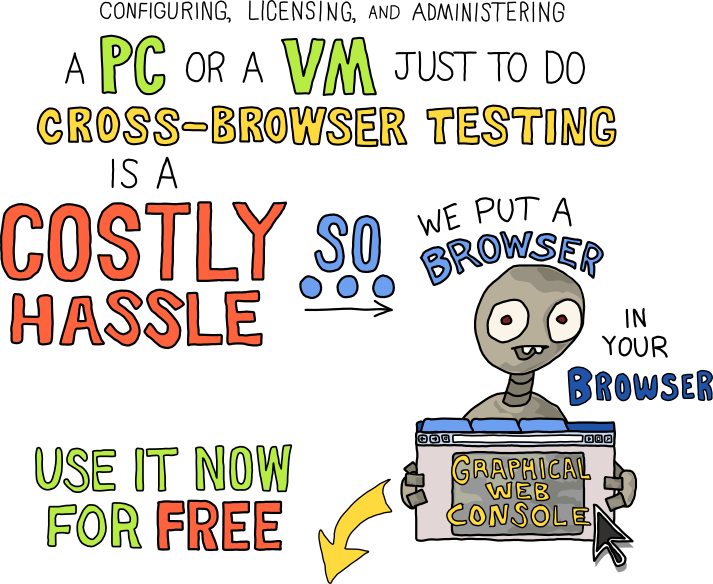 CONFIGURING, LICENSING, AND ADMINISTERING
A PC OR A VM JUST TO DO
CROSS-BROWSER TESTING
IS A
COSTLY
HASSLE
SO
WE PUT A
BROWSER
IN
YOUR
BROWSER
GRAPHICAL
WEB
CONSOLE
USE IT NOW
FOR FREE